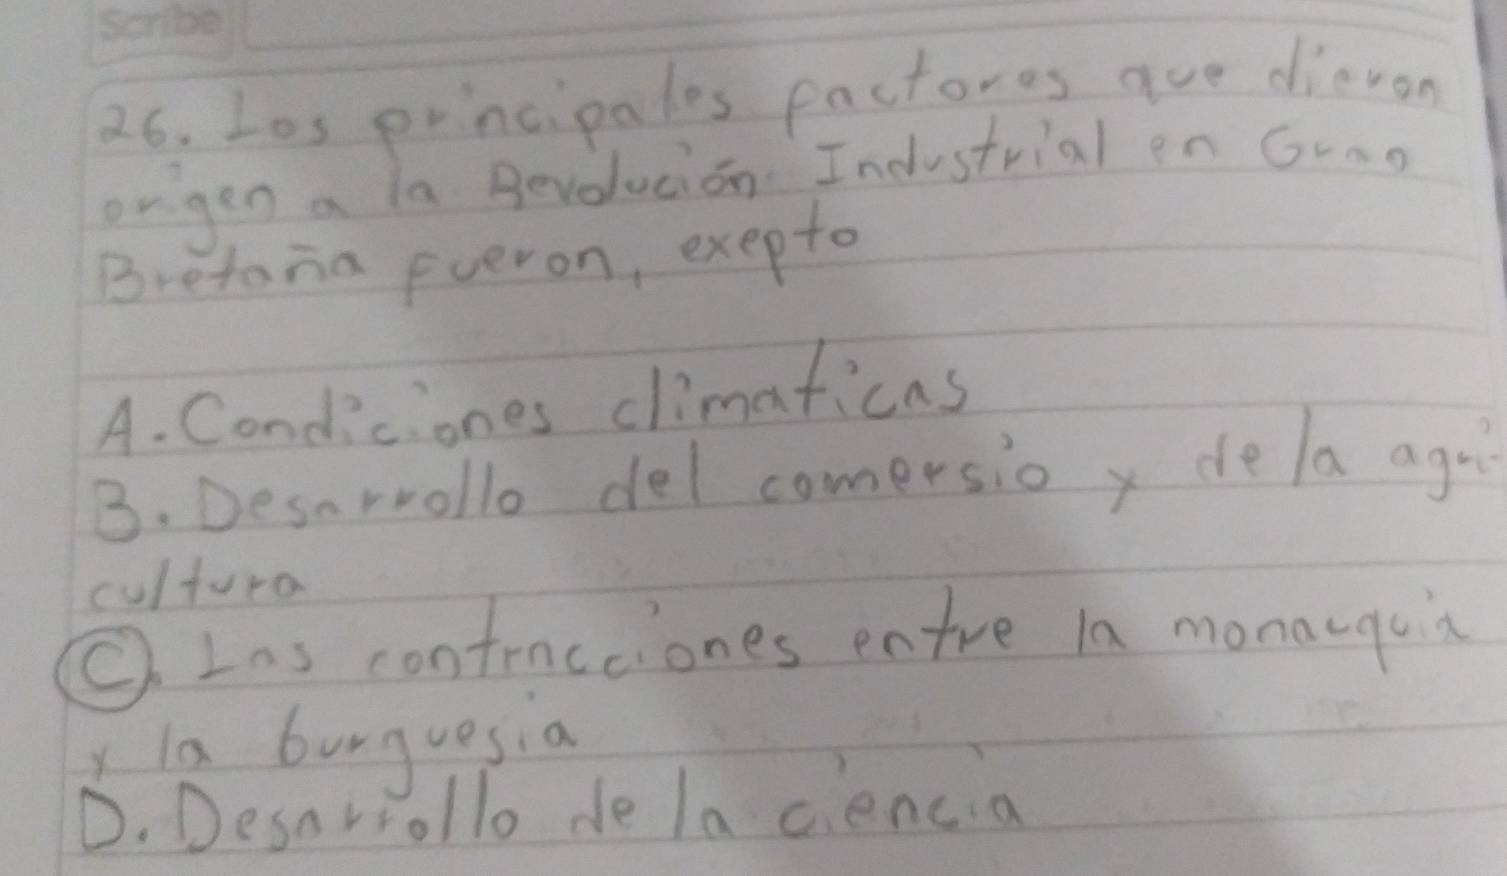 scribe
26. Los principales factores que dieron
origen a la Revolución Industrial en Gran
Bretaña fueron, exepto
A. Condiciones climaticas
B. Desarrollo del comersio y de la agri-
cultura
C. Las contracciones entre la monarquia
y la burguesia
D. Desarrollo de la ciencia